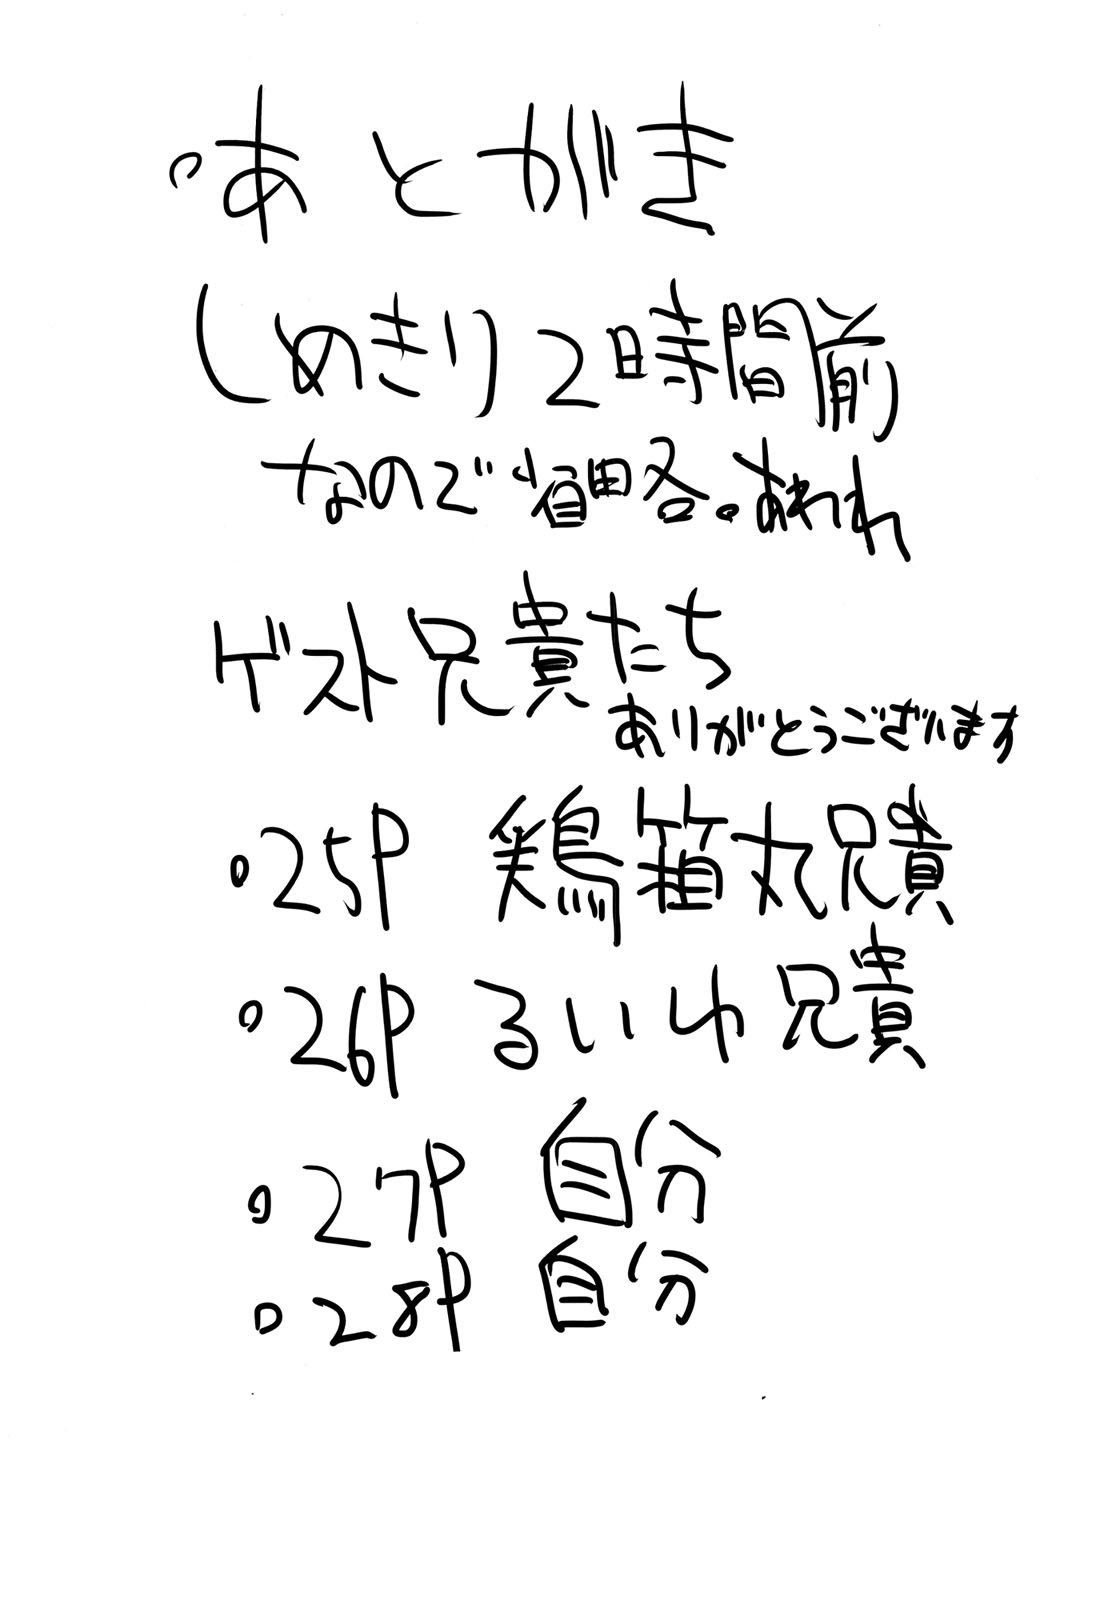 ・あとがき
しめきり2時間前
なので省略。あわれ
ゲスト兄貴たち
ありがとうございます
・25P 鶏箱丸兄貴
・26P るいわ兄貴
・27P 自分
・28P 自分